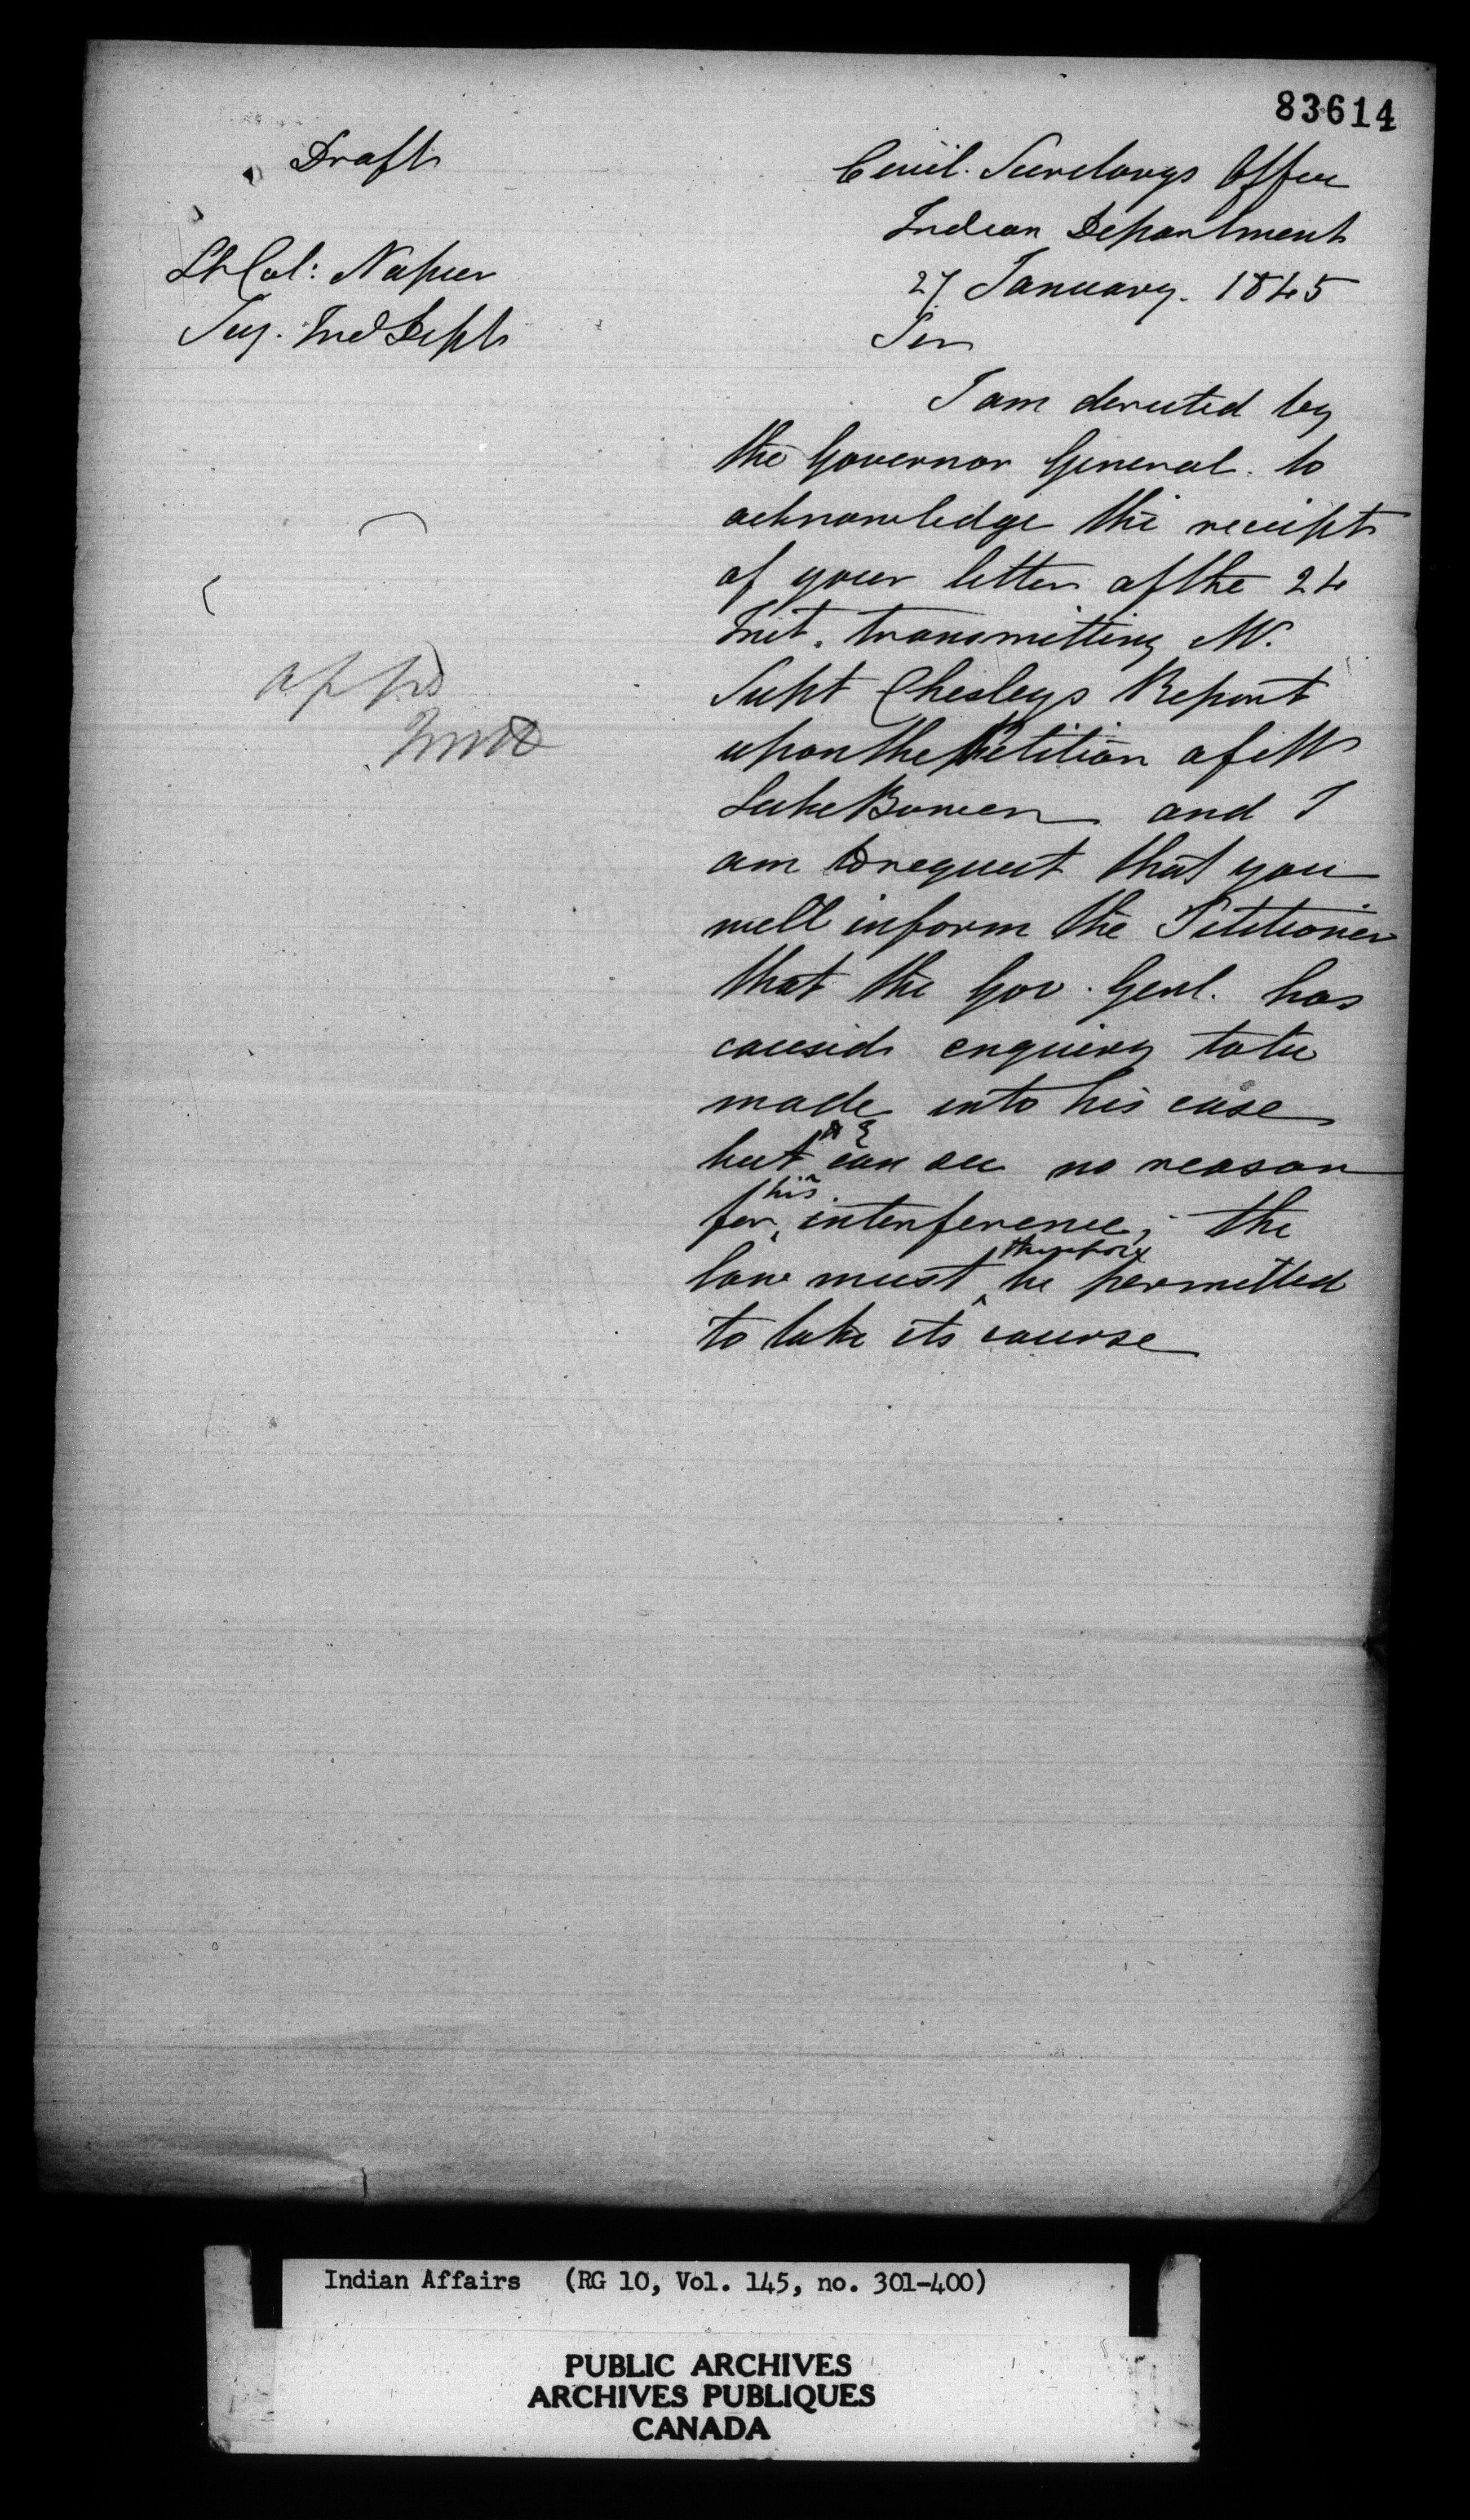 83614
Draft
Civil Secretarys Office
Indian Department
27 January. 1845
Lt Col: Napier
Secy. Ind Dept
Sir
I am directed by
the Governor General to
acknowledge the receipt
of your letter of the 24
Inst. transmitting Mr.
Supt Chesleys Report
upon the Petition of Mr
Luke Bowen and I
am to request that you
will inform the Petitioner
that the Gov. Genl. has
caused enquiry to be
made into his case
but can see no reason
for his interference, - the
law must therefore be permitted
to take its course
appd
Indian Affairs (RG 10, Vol. 145, no. 301-400)
PUBLIC ARCHIVES
ARCHIVES PUBLIQUES
CANADA